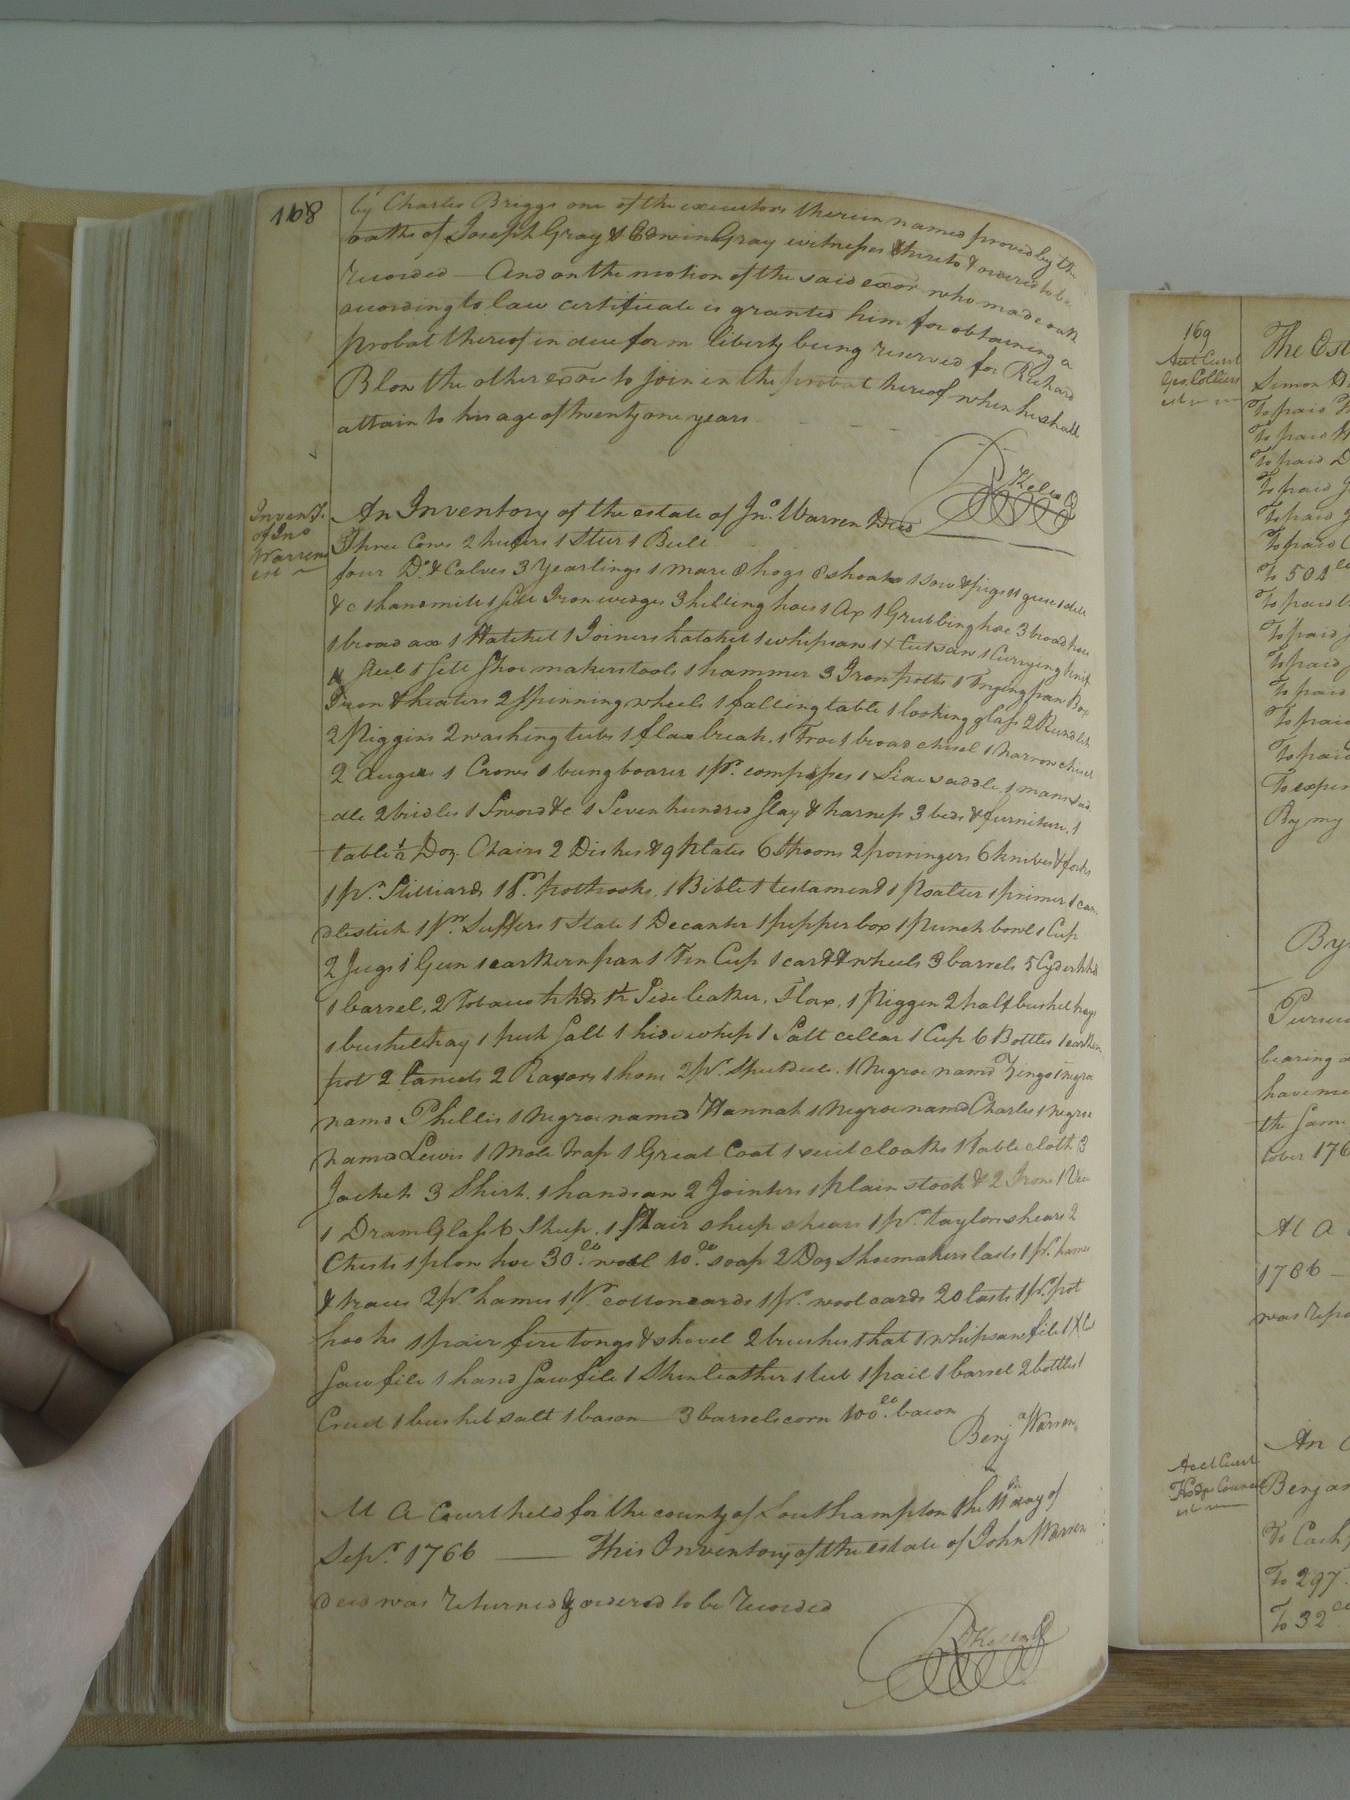 168
by Charles Briggs one of the executors therein named proved by the
oaths of Joseph Gray & Edwin Gray witnesses thereto & ordered to be
recorded — And on the motion of the said exor who made oath
according to law certificate is granted him for obtaining a
probat thereof in due form liberty being reserved for Richard
Blow the other exor to join in the probat hereof when he shall
attain to his age of twenty one years
Invent.
of Jno
Warrens
est
An Inventory of the estate of Jno. Warren Decd
Three Cows 2 heifers 1 Stear 1 Bull
four Do. & Calves 3 Yearlings 1 mare 8 hogs 8 shoats 1 sow & pigs 11 geese
&c 1 handmill 1 sett Iron wedges 3 hilling hoes 1 Ax 1 Grubbing hoe 3 broad hoes
1 broad ax 1 Hatchet 1 Joiners hatchet 1 whipsaw 1 X Cut saw 1 Currying knife
steel 1 sett Shoemakers tools 1 hammer 3 Iron potts 1 Frying pan Box
Iron & heaters 2 spinning wheels 1 falling table 1 looking glass 2 Rundlets
2 Piggins 2 washing tubs 1 flax break, 1 Froe 1 broad chisel 1 narrow chisel
2 augers 1 Crows 1 bung boarer 1 pr. compasses 1 Side saddle, 1 mans sad
dle 2 bridles 1 Sword &c 1 Seven hundred Slay & harness 3 beds & furniture, 1
table ½ Doz. Chairs 2 Dishes & 9 Plates 6 Spoons 2 poringers 6 knives & forks
1 pr. Stilliards 1 pr. pothooks, 1 Bible 1 testament 1 Psalter 1 primer 1 can
dlestick 1 pr. Snffers 1 Slate 1 Decanter 1 pepper box 1 Punch bowl 1 Cup
2 Jugs 1 Gun 1 earthern pan 1 Tin Cup 1 cart & wheels 3 barrels 5 Cyder hhds
1 barrel, 2 Tobacco hhds Side leather, Flax, 1 Piggin 2 half bushel trays
1 bushel tray 1 peck Salt 1 hide whip 1 Salt cellar 1 Cup 6 Bottles 1 earthen
pot 2 lancets 2 Razors 1 hone 2 pr. Spectacls. 1 Negroe namd 1 negroe
namd Phillis 1 Negroe named Hannah 1 Negroe namd Charles 1 negroe
named Lewis 1 Mole trap 1 Great Coat 1 suit cloaths 1 Table cloth 3
Jackets 3 Shirts. 1 handsaw 2 Jointers 1 plain stock & 2 Irons
1 Dram Glass 6 Sheep, 1 Pair sheep shears 1 pr. taylors shears 2
Chests 1 plow hoe 30 lb. wool 10 lb. soap 2 Doz shoemakers lasts 1 pr. hames
& traces 2 pr. hames 1 pr. cotton cards 1 pr. wool cards 20 lasts 1 pr. pot
hooks 1 pair fire tongs & shovel 2 brushes 1 hat 1 whipsaw file 1 X Cut
Saw file 1 hand Saw file 1 Skin leather 1 tub 1 pail 1 barrel 2 bottles 1
Cruet 1 bushel salt 1 bason — 3 barrels corn 100 lb. bacon
Benj. Warren
At A Court held for the county of Southampton the 11th day of
Sepr. 1766 — This Inventory of the estate of John Warren
decd was returned & ordered to be recorded
169
Acct Curt
Geo. Colliers
est
The Est
Simon
To paid
To paid
To paid D
To paid
To paid
To paid
To 502
To paid
To paid
To paid
To paid
To paid
To paid
To expen
By my
By
Pursu
bearing
have
the same
tober 176
At A
1766 —
was
Acct Curt
An
Benjam
To Cash
To 297
To 32